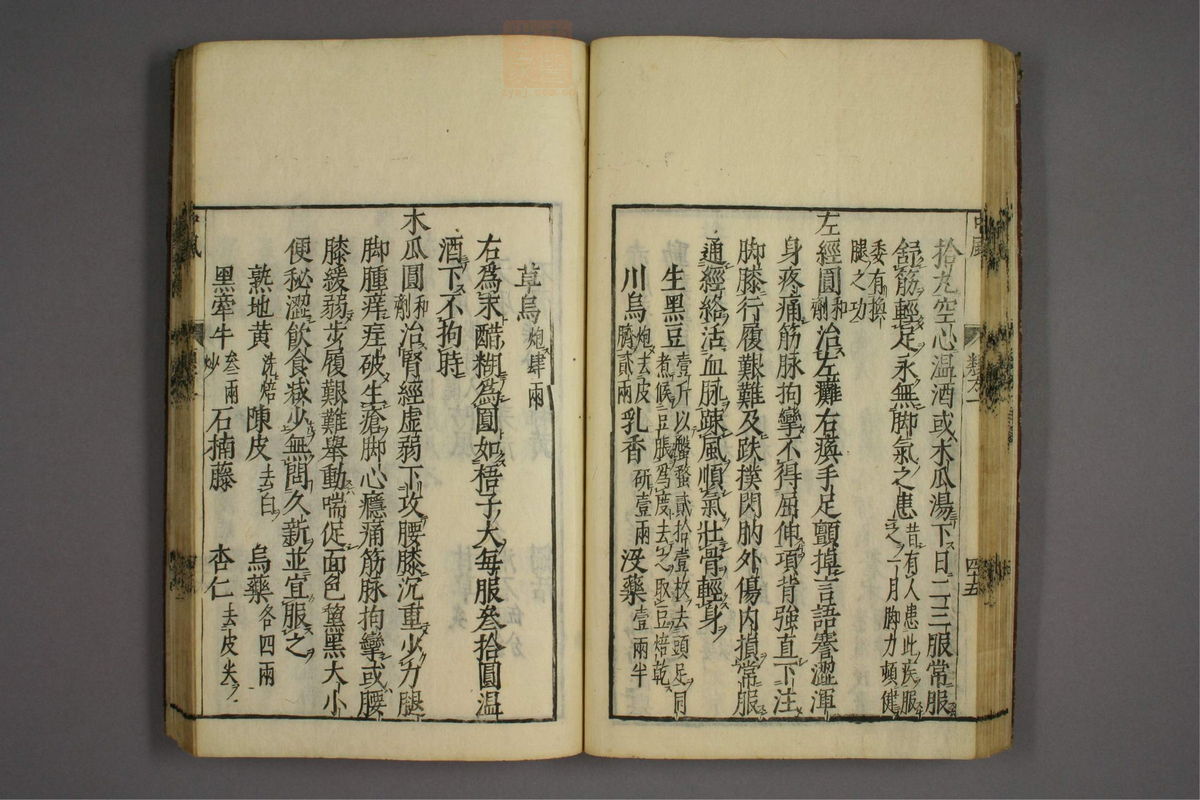 拾丸空心温酒或木瓜湯下日二三服常服
舒筋輕足永無脚氣之患昔有人患此疾服之一月脚力頓健
委有換腿之功
左經圓和劑治左癱右瘓手足顫掉言語謇澀渾
身疼痛筋脉拘攣不得屈伸項背強直下注
脚膝行履艱難及跌撲閃肭外傷内損常服
通經絡活血脉踈風順氣壯骨輕身
生黒豆壹斤以盤蝥貳拾壹枚去頭足同煮候豆脹爲度去之取豆焙乾
川烏炮去皮臍貳兩 乳香研壹兩 没藥壹兩半
中風
四十五
草烏炮肆兩
右爲末醋糊爲圓如梧子大每服叁拾圓温
酒下不拘時
木瓜圓和劑治腎經虚弱下攻腰膝沉重少力腿
脚腫痒疰破生瘡脚心癮痛筋脉拘攣或腰
膝緩弱步履艱難舉動喘促面色黧黒大小
便秘澀飲食減少無問久新並宜服之
熟地黄洗焙 陳皮去白 烏藥各四兩
黒牽牛叁兩炒 石楠藤 杏仁去皮尖
中風